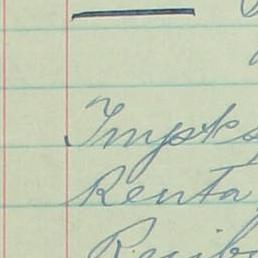 Impks
Renta
Recib